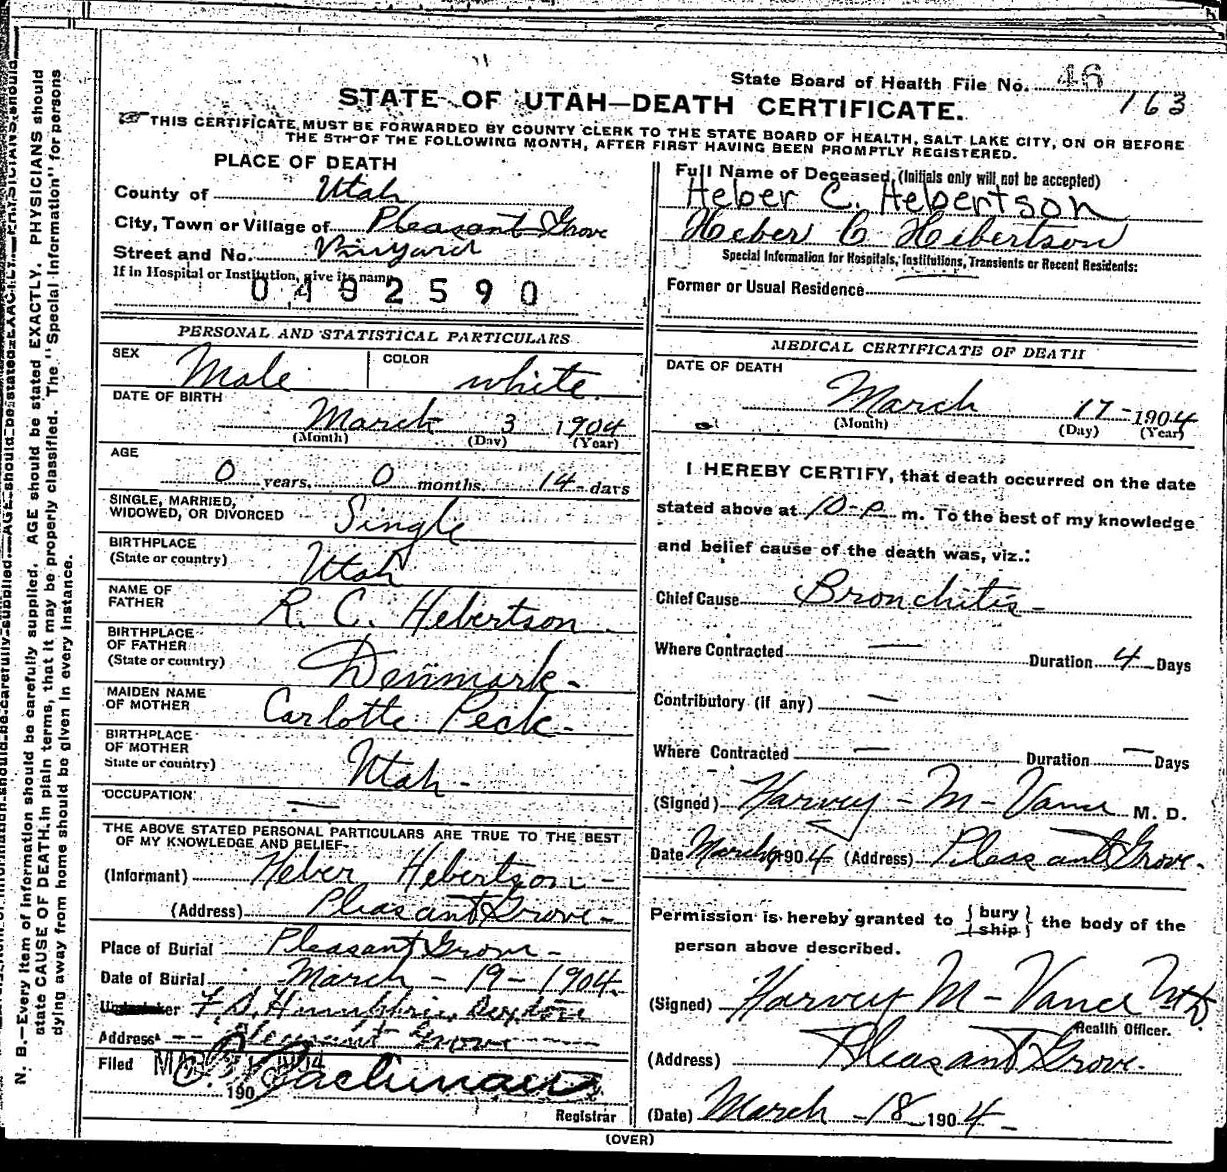 State Board of Health File No. 46
163
STATE OF UTAH—DEATH CERTIFICATE.
THIS CERTIFICATE MUST BE FORWARDED BY COUNTY CLERK TO THE STATE BOARD OF HEALTH, SALT LAKE CITY, ON OR BEFORE
THE 5TH OF THE FOLLOWING MONTH, AFTER FIRST HAVING BEEN PROMPTLY REGISTERED.
PLACE OF DEATH
County of Utah
City, Town or Village of Pleasant Grove
Street and No. Vinyard
If in Hospital or Institution, give its name
0 4 0 2 5 9 0
PERSONAL AND STATISTICAL PARTICULARS
SEX Male COLOR white.
DATE OF BIRTH
March 3 1904
(Month) (Day) (Year)
AGE
0 years, 0 months, 14 days
SINGLE, MARRIED,
WIDOWED, OR DIVORCED Single
BIRTHPLACE
(State or country) Utah
NAME OF
FATHER R. C. Hebertson
BIRTHPLACE
OF FATHER
(State or country) Denmark-
MAIDEN NAME
OF MOTHER Carlotte Peck-
BIRTHPLACE
OF MOTHER
State or country) Utah-
OCCUPATION —
THE ABOVE STATED PERSONAL PARTICULARS ARE TRUE TO THE BEST
OF MY KNOWLEDGE AND BELIEF-
(Informant) Heber Hebertson-
(Address) Pleasant Grove-
Place of Burial Pleasant Grove-
Date of Burial March - 19 - 1904.
Undertaker F. D. Humphries
Address Pleasant Grove
Filed 1904
190
Registrar
(OVER)
Full Name of Deceased, (Initials only will not be accepted)
Heber C. Hebertson
Heber C Hebertson
Special Information for Hospitals, Institutions, Transients or Recent Residents:
Former or Usual Residence
MEDICAL CERTIFICATE OF DEATH
DATE OF DEATH
March 17-1904
(Month) (Day) (Year)
I HEREBY CERTIFY, that death occurred on the date
stated above at 10-P m. To the best of my knowledge
and belief cause of the death was, viz.:
Chief Cause Bronchitis-
Where Contracted — Duration 4 Days
Contributory (if any) —
Where Contracted — Duration — Days
(Signed) Harvey-M-Vance M. D.
Date March 1904 (Address) Pleasant Grove.
Permission is hereby granted to {bury
{ship} the body of the
person above described.
(Signed) Harvey M-Vance MD
Health Officer.
(Address) Pleasant Grove.
(Date) March -18 1904-
N. B.—Every item of information should be carefully supplied. AGE should be stated EXACTLY. PHYSICIANS should
state CAUSE OF DEATH in plain terms, that it may be properly classified. The "Special Information" for persons
dying away from home should be given in every instance.